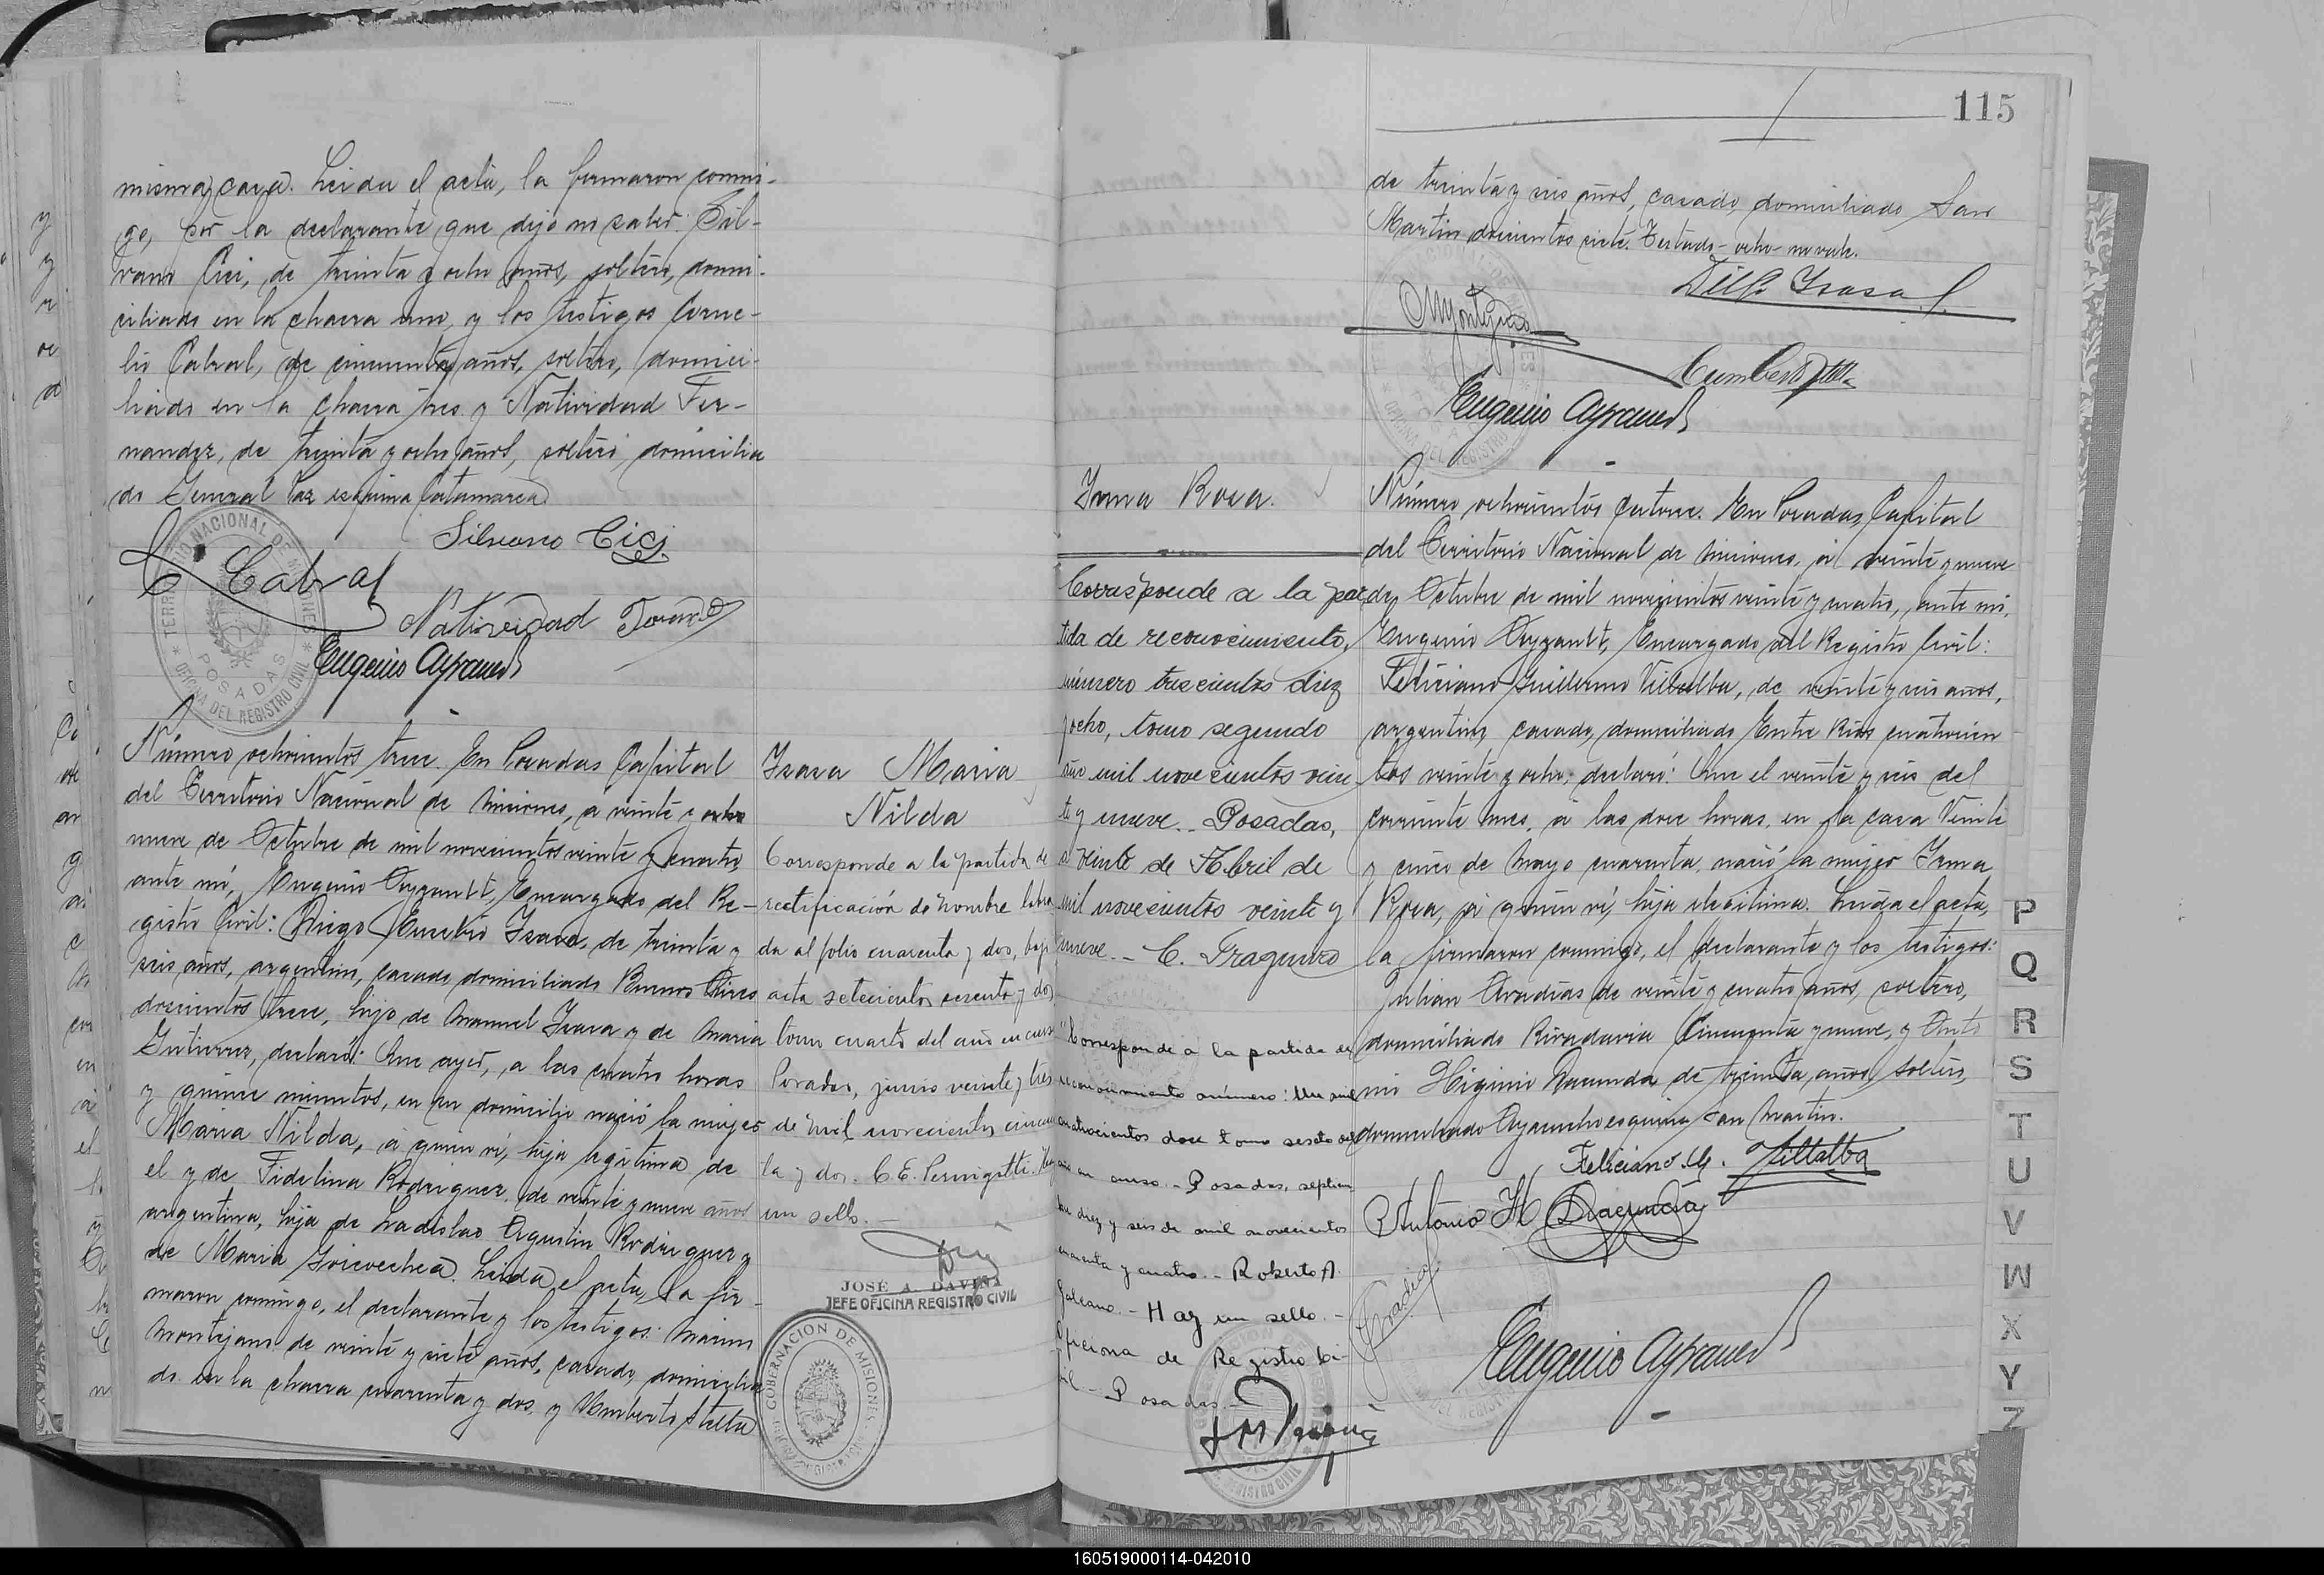 misma casa. Leida el acta, la firmaron conmi-
go, por la declarante que dijo no saber: Sil-
vano Cici, de treinta y ocho años, soltero, domi-
ciliado en la chacra uno, y los testigos Corne-
lio Cabral, de cincuenta años, soltero, domici-
liado en la chacra tres y Natividad Fer-
nandez, de treinta y ocho años, soltero, domicilia
do General Paz esquina Catamarca
Silvano Cici
C. Cabral
Natividad
Eugenio
TERRITORIO NACIONAL DE MISIONES
OFICINA DEL REGISTRO CIVIL
POSADAS
Número ochocientos trece. En Posadas Capital
del Territorio Nacional de Misiones, a veinte y ocho
nueve de Octubre de mil novecientos veinte y cuatro,
ante mí, Eugenio Encargado del Re-
gistro Civil: Diego Eusebio Isasa, de treinta y
seis años, argentino, casado, domiciliado Buenos Aires
doscientos trece, hijo de Manuel Isasa y de Maria
Gutierrez, declaró: Que ayer, a las cuatro horas
y quince minutos, en su domicilio nació la mujer
Maria Nilda, a quien ví, hija legítima de
el y de Fidelina Rodriguez, de veinte y nueve años
argentina, hija de Ladislao Agustin Rodriguez y
de Maria Goicochea. Leida el acta, la fir-
maron conmigo, el declarante y los testigos: Marcos
Montejano de veinte y siete años, casado, domicilia
do en la chacra cuarenta y dos, y Umberto
Isasa Maria
Nilda
Corresponde a la partida de
rectificación de nombre labra
da al folio cuarenta y dos, bajo
acta setecientos sesenta y dos
tomo cuarto del año en curso
Posadas, junio veinte y tres
de mil novecientos cincuen
ta y dos. C. E. Pernigotti. Hay
un sello.
JOSÉ A. DAVIÑA
JEFE OFICINA REGISTRO CIVIL
GOBERNACION DE MISIONES
115
de treinta y seis años, casado, domiciliado San
Martin doscientos siete. Testado - ocho - no vale.
Diego Isasa
Montejano
Umberto
Eugenio
Irma Rosa.
Corresponde a la par
tida de reconocimiento,
número trescientos diez
y ocho, tomo segundo
año mil novecientos vein
te y nueve. Posadas,
a veinte de Abril de
mil novecientos veinte y
nueve. - C. Fragueiro
Corresponde a la partida de
reconocimiento número: Un mil
cuatrocientos doce tomo sexto del
año en curso. - Posadas, septiem
bre diez y seis de mil novecientos
cuarenta y cuatro. - Roberto A.
Galeano. - Hay un sello. -
Oficina de Registro Ci-
vil - Posadas. -
Número ochocientos catorce. En Posadas Capital
del Territorio Nacional de Misiones, a veinte y nueve
de Octubre de mil novecientos veinte y cuatro, ante mi,
Eugenio Encargado del Registro Civil:
Feliciano Guillermo Villalba, de veinte y seis años,
argentino, casado, domiciliado Entre Rios cuatrocien
tos veinte y ocho, declaró: Que el veinte y seis del
corriente mes, a las doce horas, en la casa Veinte
y cinco de Mayo cuarenta, nació la mujer Irma
Rosa, a quien ví, hija ilegítima. Leida el acta,
la firmaron conmigo, el declarante y los testigos:
Julian Obradias de veinte y cuatro años, soltero,
domiciliado Rivadavia Cincuenta y nueve, y Anto
nio Higinio Dacunda de treinta años, soltero,
domiciliado Ayacucho esquina San Martin.
Feliciano G. Villalba
Antonio H Dacunda
Eugenio
P
Q
R
S
T
U
V
W
X
Y
Z
160519000114-042010